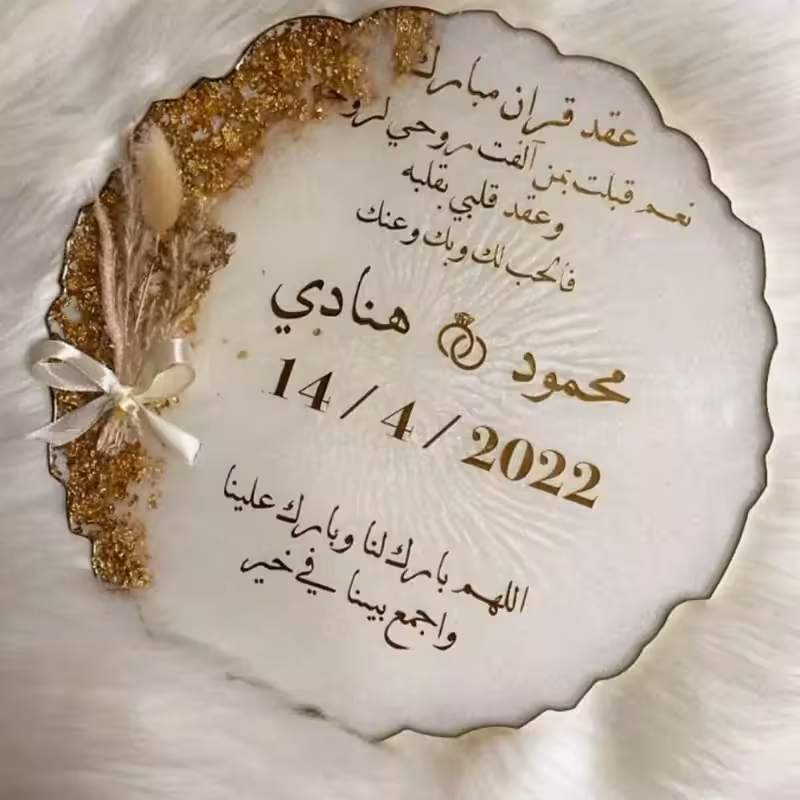 عقد قران مبارك
نعم قبلت بمن آلفت روحي لروحه
وعقد قلبي بقلبه
فالحب لك وبك وعنك
محمود هنادي
14/4/2022
اللهم بارك لنا وبارك علينا
واجمع بيننا في خير